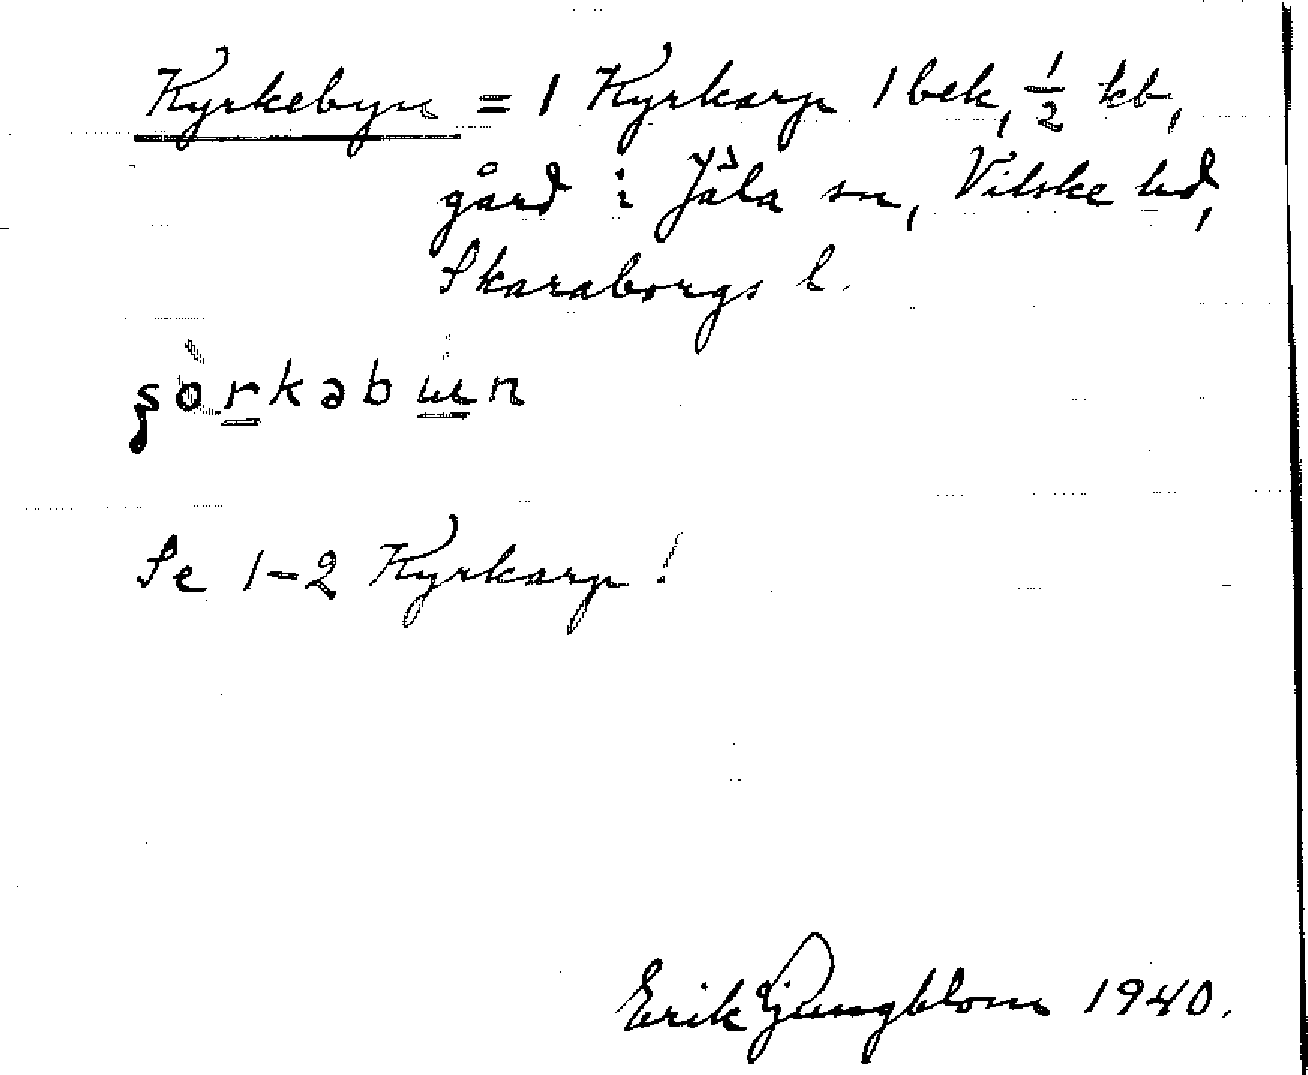 Kyrkebyn = 1 Kyrkarp 1 bek, ½ kb,
gård i Jäla sn, Vilske hd,
Skaraborgs l.
şòrkəbɯn
Se 1-2 Kyrkarp!
Erik Ljungblom 1940.